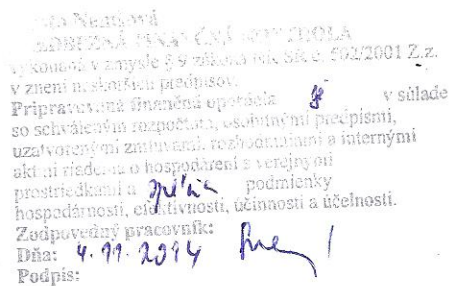 PREDBEŽNÁ FINANČNÁ KONTROLA
vykonaná v zmysle § 9 zákona NR SR č. 502/2001 Z.z.
v znení neskorších predpisov.
Pripravovaná finančná operácia je v súlade
so schváleným rozpočtom, osobitnými predpismi,
uzatvorenými zmluvami, rozhodnutiami a internými
aktmi riadenia o hospodárení s verejnými
prostriedkami a spĺňa podmienky
hospodárnosti, efektívnosti, účinnosti a účelnosti.
Zodpovedný pracovník:
Dňa: 4.11.2014
Podpis: